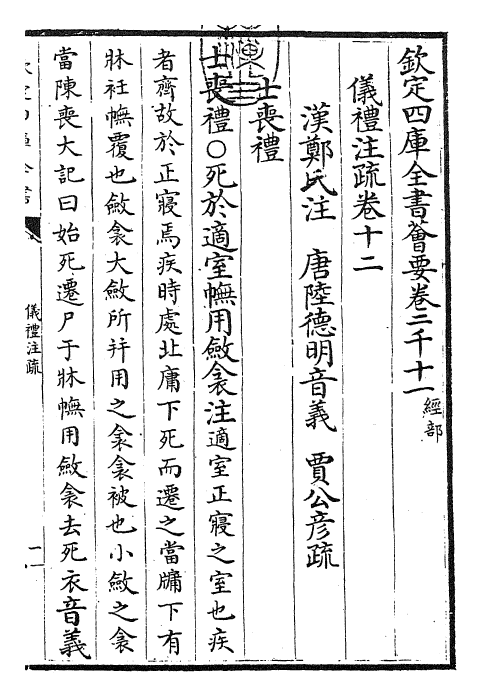 欽定四庫全書薈要卷二千十一經部
儀禮注疏卷十二
漢鄭氏注　唐陸德明音義　賈公彥疏
士喪禮
士喪禮○死於適室幠用斂衾注適室正寢之室也疾
者齊故於正寢焉疾時處北庸下死而遷之當牖下有
牀衽幠覆也斂衾大斂所并用之衾衾被也小斂之衾
當陳喪大記曰始死遷尸于牀幠用斂衾去死衣音義
儀禮注疏